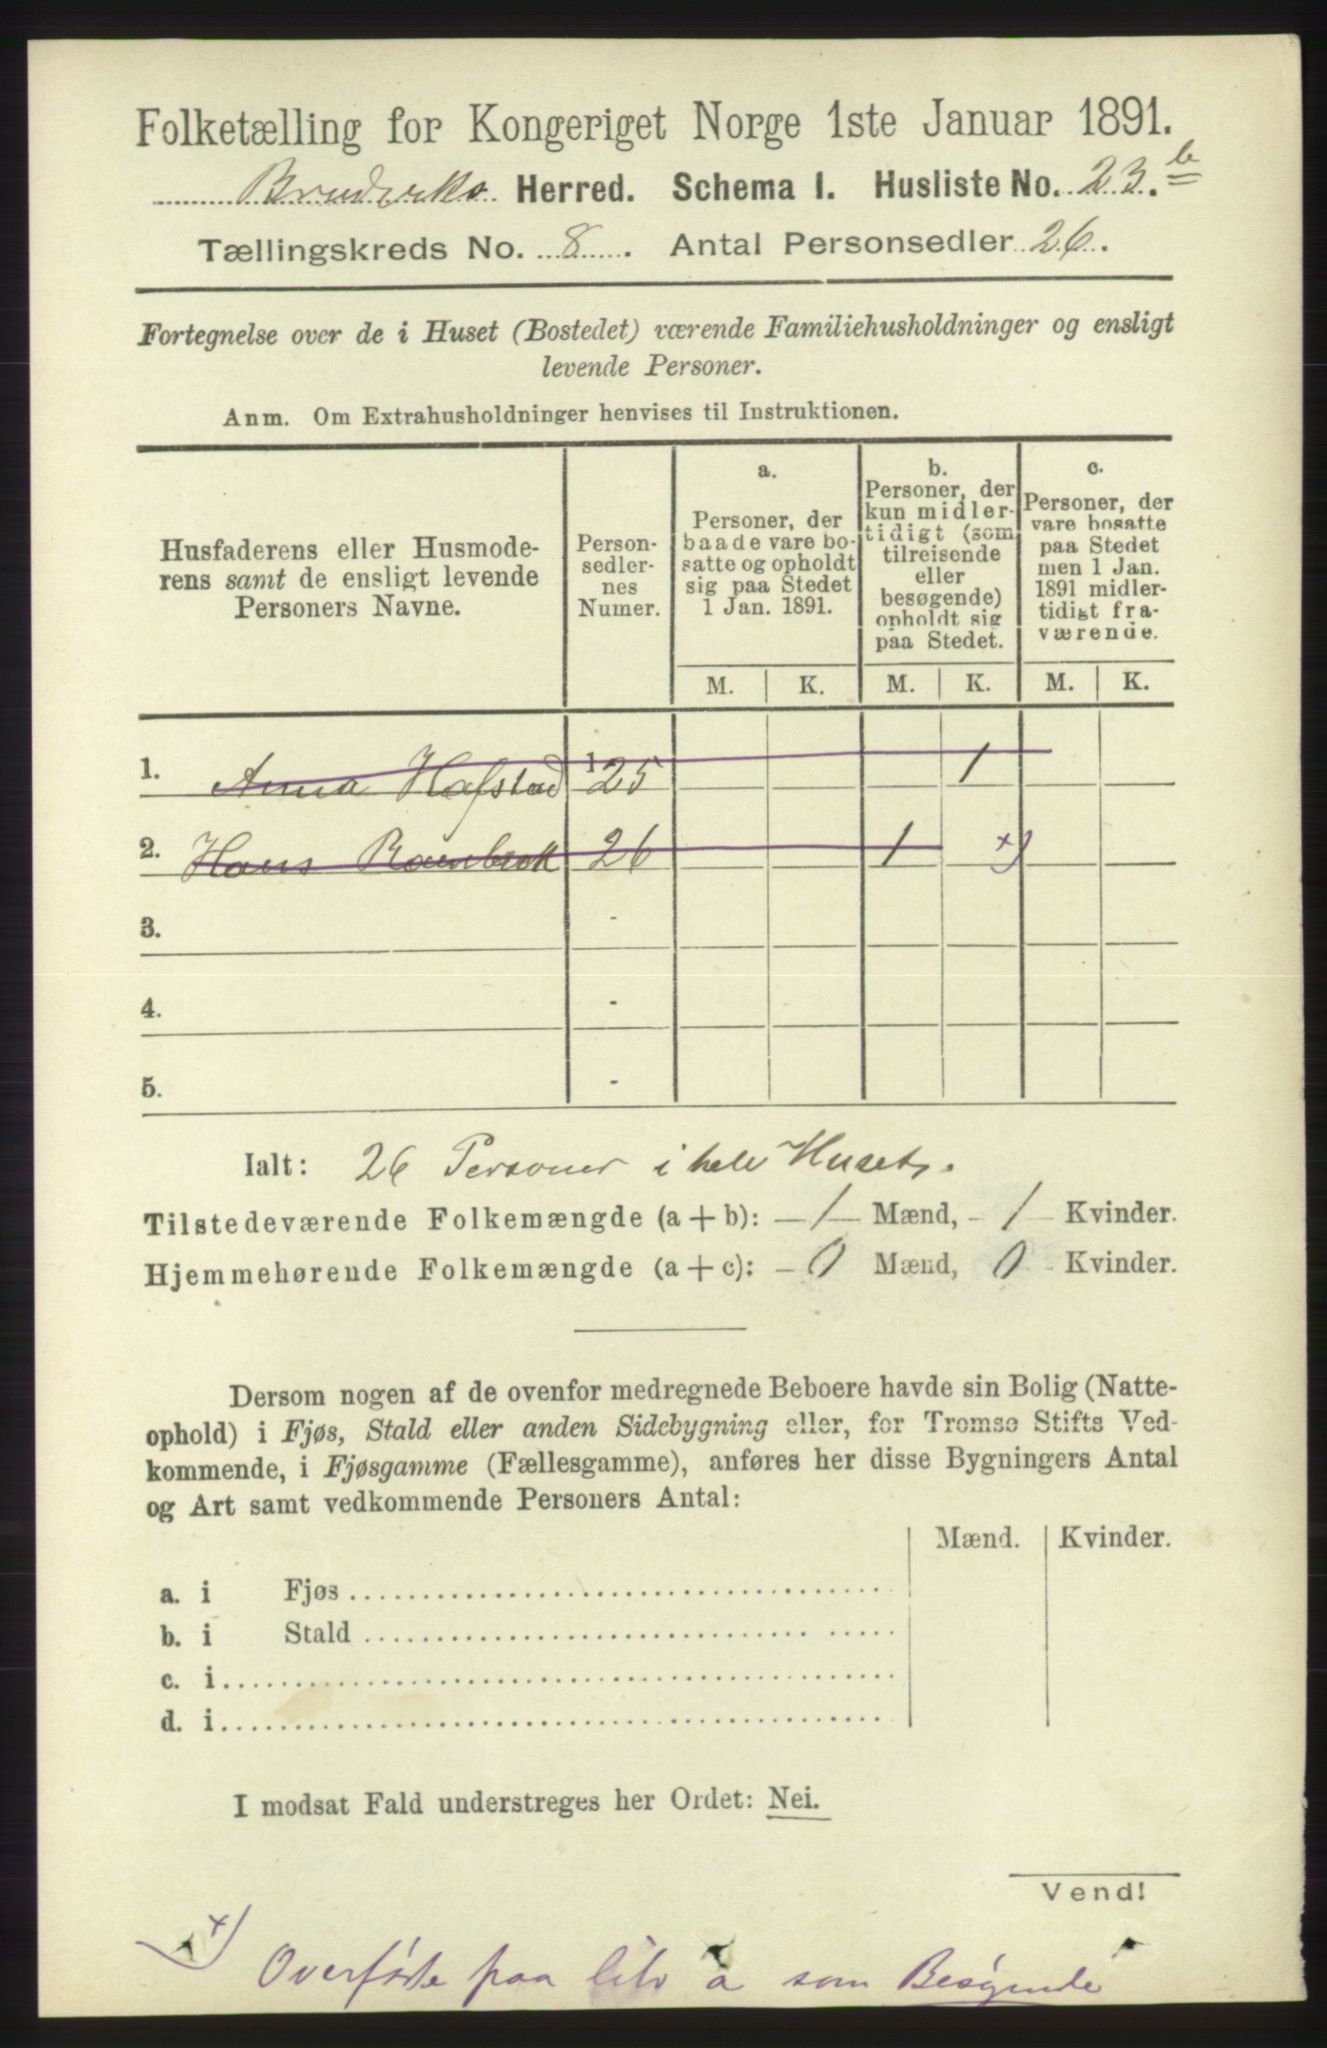 Folketælling for Kongeriget Norge 1ste Januar 1891.
Herred. Schema 1. Husliste No. 23.b
Tællingskreds No. 8. Antal Personsedler 26.
Fortegnelse over de i Huset (Bostedet) værende Familiehusholdninger og ensligt
levende Personer.
Anm. Om Extrahusholdninger henvises til Instruktionen.
Husfaderens eller Husmode-
rens samt de ensligt levende
Personers Navne.
Person-
sedler-
nes
Numer.
a.
Personer, der
baade vare bo-
satte og opholdt
sig paa Stedet
1 Jan. 1891.
b.
Personer, der
kun midler-
tidigt (som
tilreisende
eller
besøgende)
opholdt sig
paa Stedet.
c.
Personer, der
vare bosatte
paa Stedet
men 1 Jan.
1891 midler-
tidigt fra-
værende.
M. K. M. K. M. K.
1. Anna Hafstad 1 25 1
2. Hans 26 1 x)
3. -
4. -
5. -
Ialt: 26 Personer i hele Huset.
Tilstedeværende Folkemængde (a + b): -1- Mænd, -1- Kvinder.
Hjemmehørende Folkemængde (a + c): -0 Mænd, 0- Kvinder.
Dersom nogen af de ovenfor medregnede Beboere havde sin Bolig (Natte-
ophold) i Fjøs, Stald eller anden Sidebygning eller, for Tromsø Stifts Ved-
kommende, i Fjøsgamme (Fællesgamme), anføres her disse Bygningers Antal
og Art samt vedkommende Personers Antal:
Mænd. Kvinder.
a. i Fjøs
b. i Stald
c. i
d. i
I modsat Fald understreges her Ordet: Nei.
Vend!
x) Overførte paa litr a som Besøgende